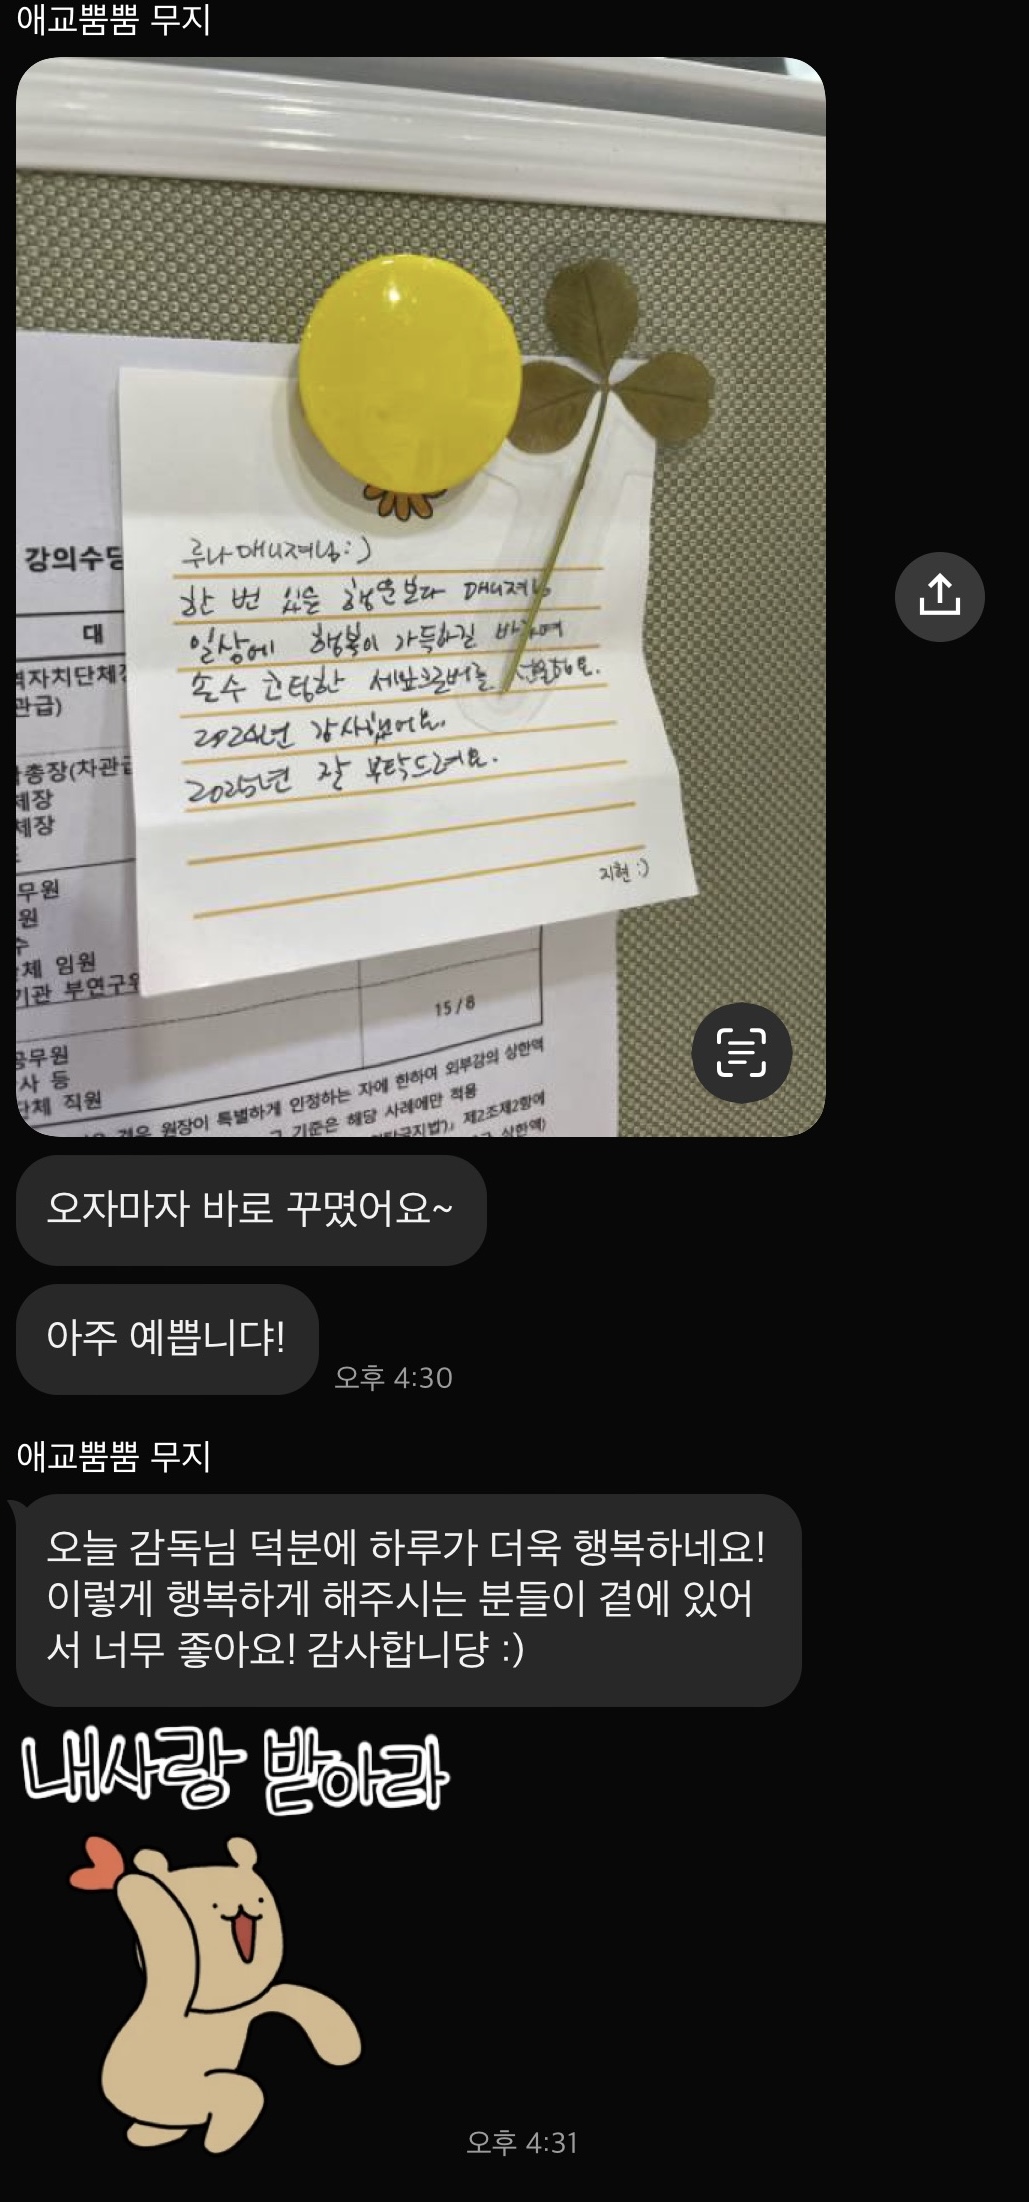 애교뿜뿜 무지
강의수당
대
자치단체장
관급)
총장(차관급
체장
체장
무원
원
수
체 임원
기관 부연구위
15/8
공무원
사 등
단체 직원
경우 원장이 특별하게 인정하는 자에 한하여 외부강의 상한액
기준은 해당 사례에만 적용
제2조제2항에
상한액)
루나매니져님:)
한 번 있을 행운보다 매니져님
일상에 행복이 가득하길 바라며
손수 코팅한 세잎크로버를 선물해요.
2024년 감사했어요.
2025년 잘 부탁드려요.
지현 :)
오자마자 바로 꾸몄어요~
아주 예쁩니댜!
오후 4:30
애교뿜뿜 무지
오늘 감독님 덕분에 하루가 더욱 행복하네요!
이렇게 행복하게 해주시는 분들이 곁에 있어
서 너무 좋아요! 감사합니댱 :)
내사랑 받아라
오후 4:31